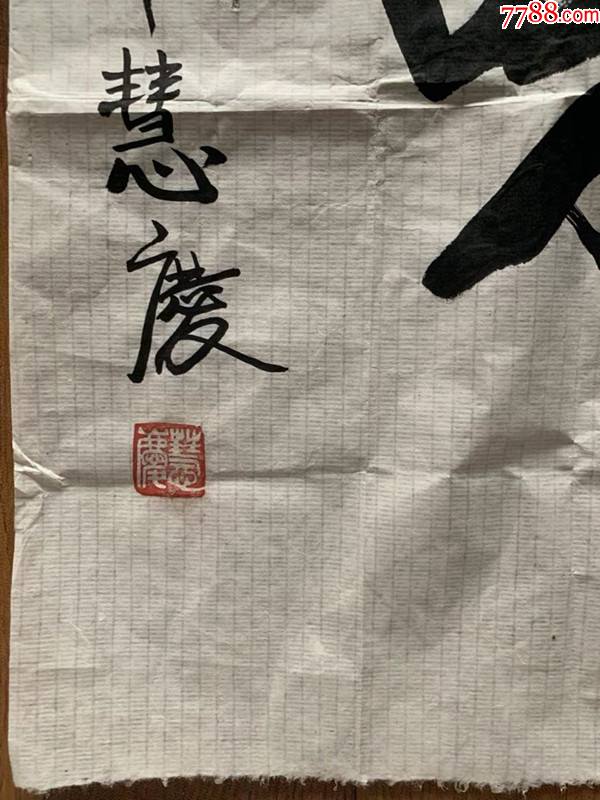 7788.com
慧慶
慧慶